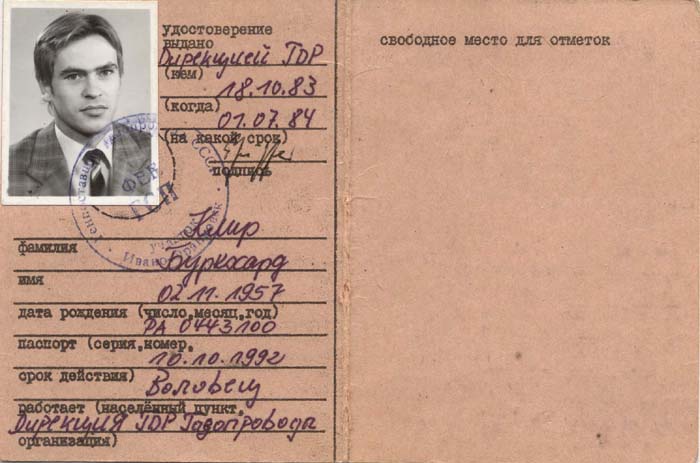 удостоверение
выдано
Дирекцией ГДР
(кем)
18.10.83
(когда)
01.07.84
(на какой срок)
подпись
Клир
фамилия
Буркхард
имя
02.11.1957
дата рождения (число,месяц,год)
РА 0443100
паспорт (серия,номер,
10.10.1992
срок действия)
Воловец
работает (населённый пункт,
Дирекция ГДР Газопроводы
организация)
свободное место для отметок